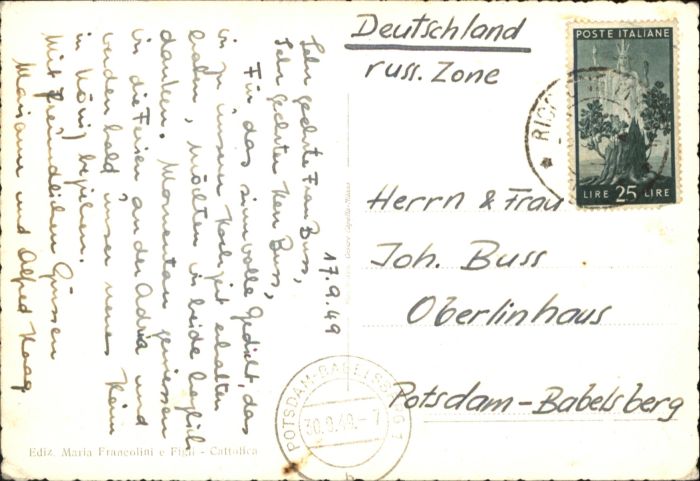 17.9.49
Sehr geehrte Frau Buss,
Sehr geehrter Herr Buss,
Für das sinnvolle Gedicht, das
wir zu unserer Hochzeit erhalten
haben, möchten wir beide herzlich
danken. Momentan geniessen
wir die Ferien an der Adria und
werden bald unser neues Heim
in König beziehen.
Mit freundlichen Grüssen
Mariann und Alfred Haag
Deutschland
russ. Zone
Herrn & Frau
Joh. Buss
Oberlinhaus
Potsdam-Babelsberg
POSTE ITALIANE
LIRE 25 LIRE
POTSDAM-BABELSBERG 1
30.9.49.-7
b
Ediz. Maria Francolini e Figli - Cattolica